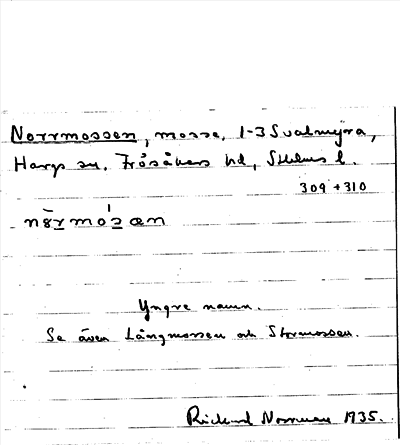 Norrmossen, mosse, 1-3 Svalmyra,
Hargs sn. Frösåkers hd, Sthlms l.
309 + 310
nǟrmo̍sæn
Yngre namn.
Se även Långmossen och Stormossen.
Rickard Norrman 1935.